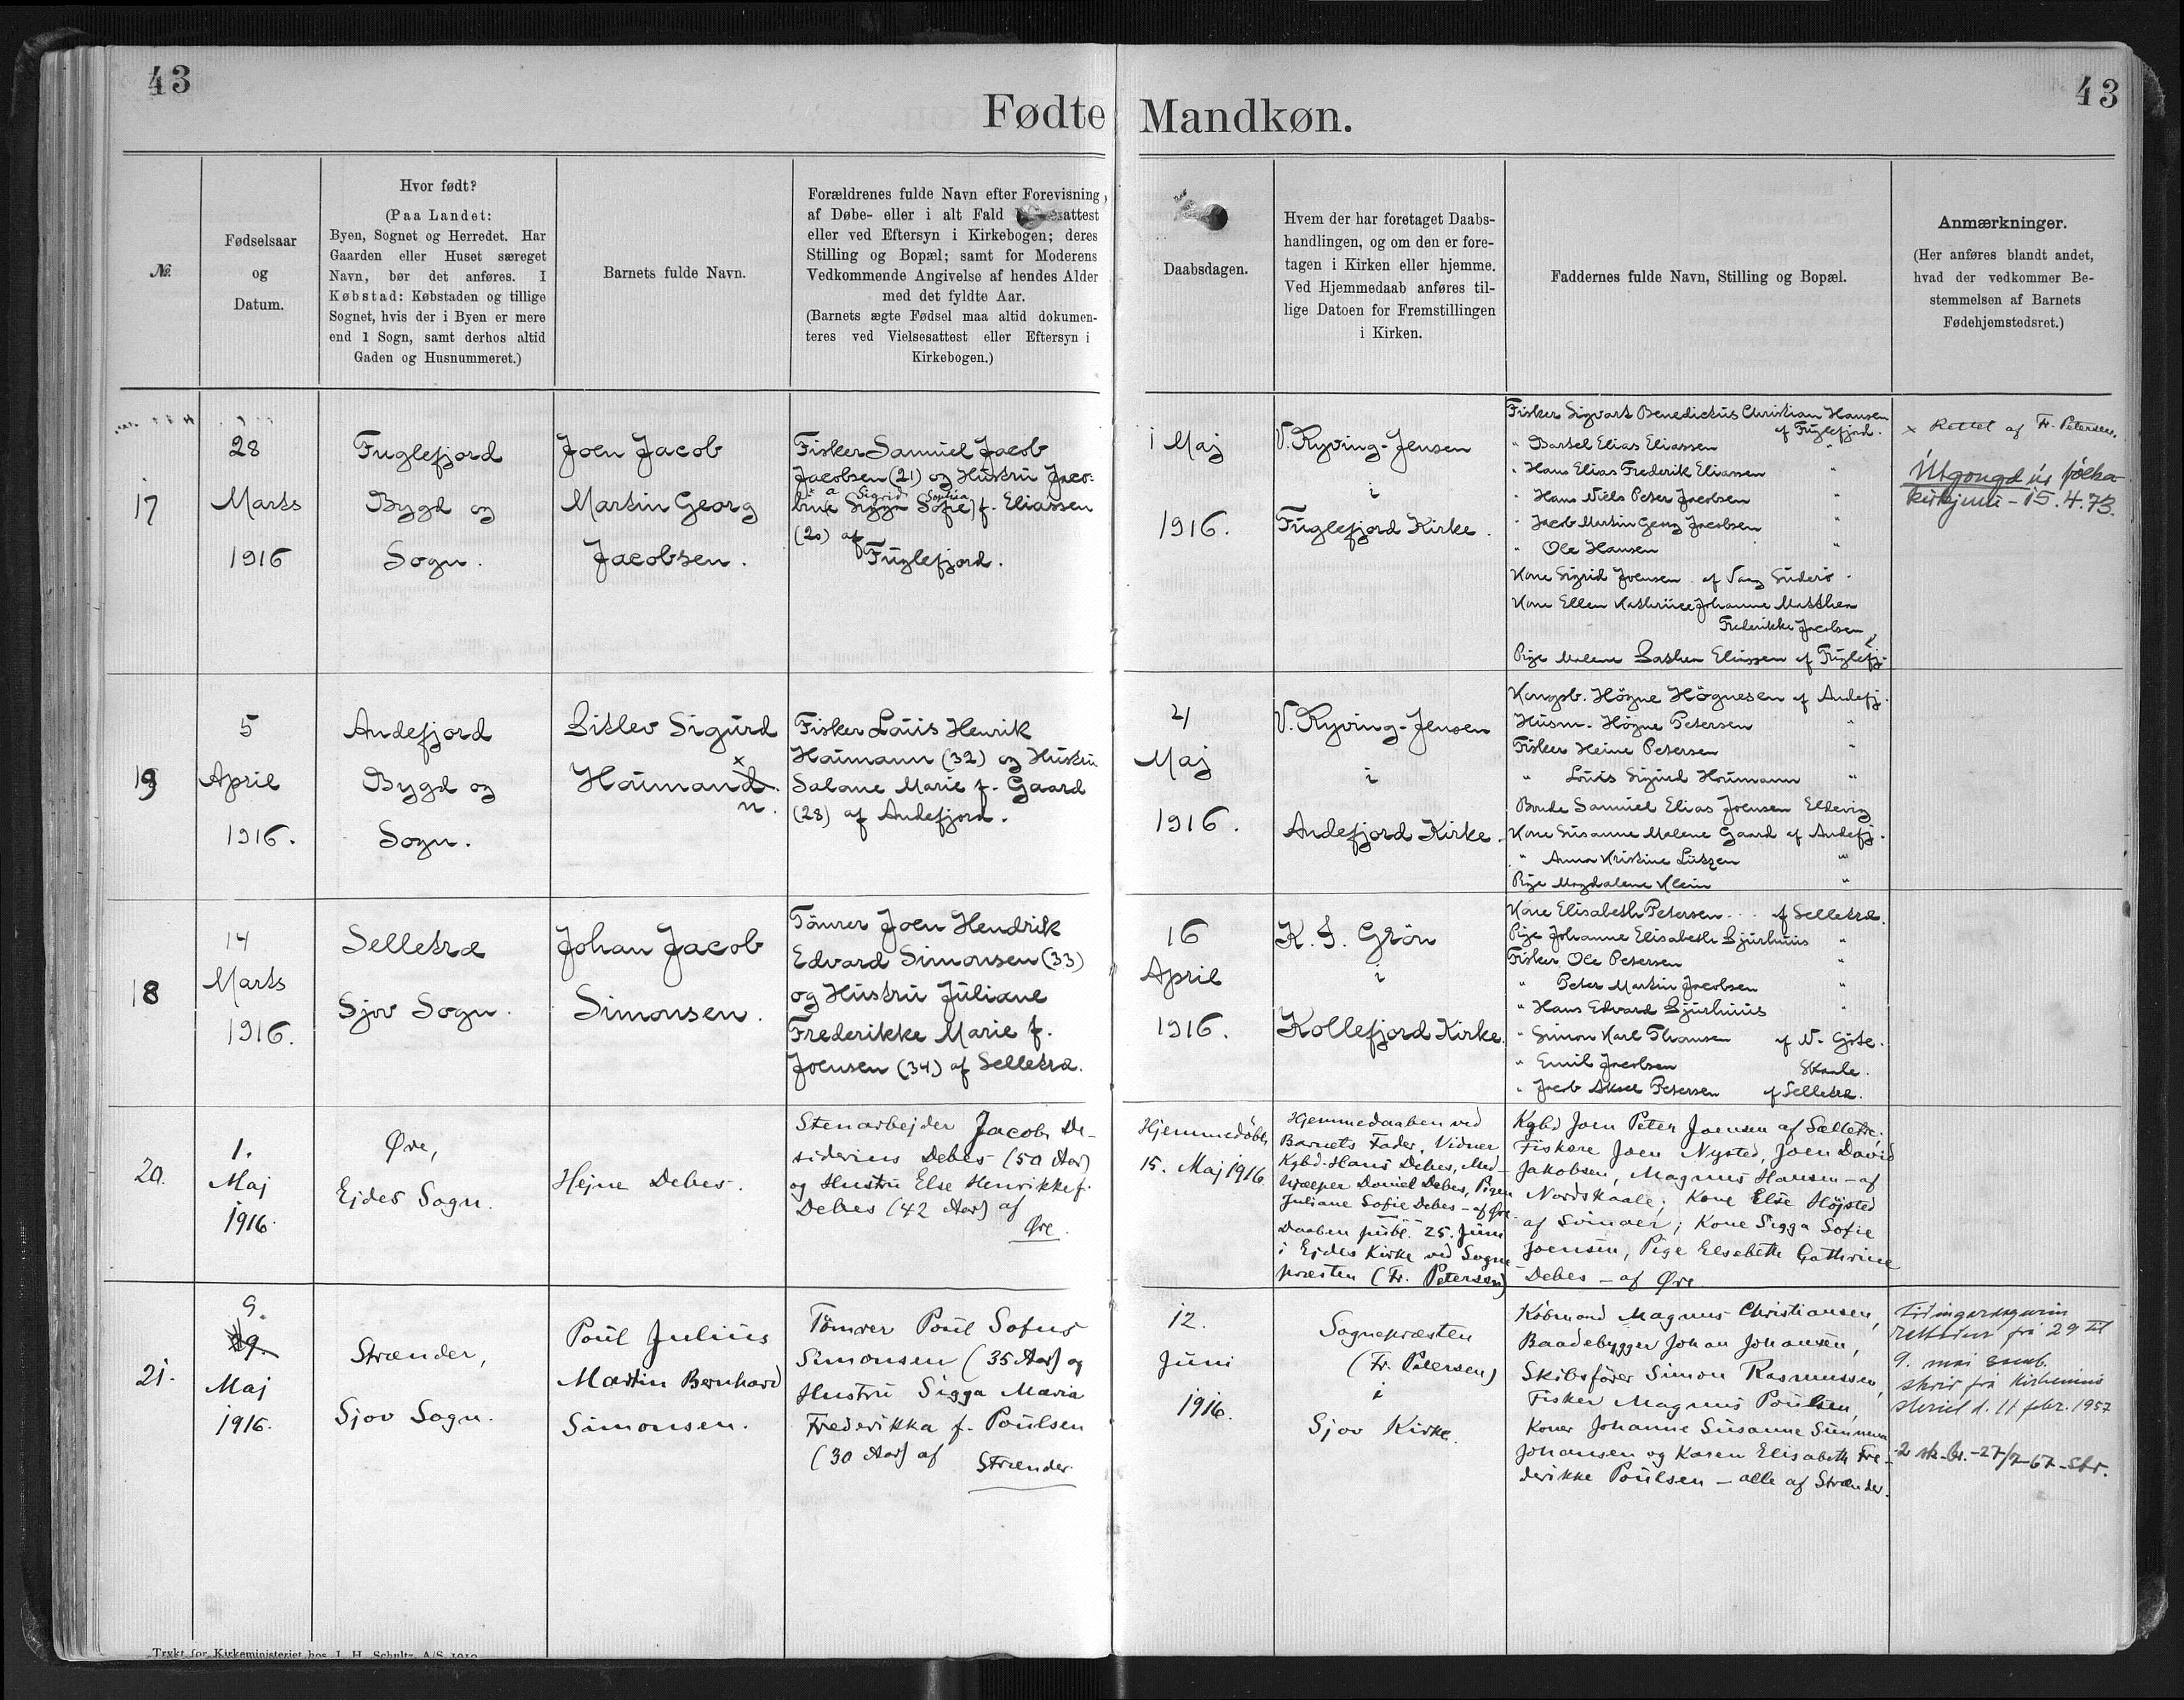 43
43
Fødte Mandkøn.
№.
Fødselsaar
og
Datum.
Hvor født?
(Paa Landet:
Byen, Sognet og Herredet. Har
Gaarden eller Huset særeget
Navn, bør det anføres. I
Købstad: Købstaden og tillige
Sognet, hvis der i Byen er mere
end 1 Sogn, samt derhos altid
Gaden og Husnummeret.)
Barnets fulde Navn.
Forældrenes fulde Navn efter Forevisning
af Døbe- eller i alt Fald
eller ved Eftersyn i Kirkebogen; deres
Stilling og Bopæl; samt for Moderens
Vedkommende Angivelse af hendes Alder
med det fyldte Aar.
(Barnets ægte Fødsel maa altid dokumen-
teres ved Vielsesattest eller Eftersyn i
Kirkebogen.)
Daabsdagen.
Hvem der har foretaget Daabs-
handlingen, og om den er fore-
tagen i Kirken eller hjemme.
Ved Hjemmedaab anføres til-
lige Datoen for Fremstillingen
i Kirken.
Faddernes fulde Navn, Stilling og Bopæl.
Anmærkninger.
(Her anføres blandt andet,
hvad der vedkommer Be-
stemmelsen af Barnets
Fødehjemstedsret.)
17
28
Marts
1916
Fuglefjord
Bygd og
Sogn.
Joen Jacob
Martin Georg
Jacobsen.
Fisker Samuel Jacob
Jacobsen (21) og Hustru Jaco-
a Sigrid Sophia
bine Sofie) f. Eliassen
(20) af
Fuglefjord.
1 Maj
1916.
V. Ryving-Jensen
i
Fuglefjord Kirke.
Fisker Sigvart Benedictus Christian Hansen
af Fuglefjord.
" Bartel Elias Eliassen "
" Hans Elias Frederik Eliassen "
" Hans Niels Peter Jacobsen "
" Jacob Martin Georg Jacobsen "
" Ole Hansen "
Kone Sigrid Joensen af Vaag Suderö.
Kone Ellen Kathrine Johanne Matthea
Frederikke Jacobsen
Pige Malene Eliassen af Fuglefj.
x Rettet af Fr. Petersen.
Útgongd úr fólka-
kirkjuni - 15.4.73.
19
5
April
1916.
Andefjord
Bygd og
Sogn.
Ditlev Sigurd
x
Houmand.
n.
Fisker Louis Henrik
Houmann (32) og Hustru
Salome Marie f. Gaard
(28) af Andefjord.
21
Maj
1916.
V. Ryving-Jensen
i
Andefjord Kirke.
Kongsb. Högne Högnesen af Andefj.
Husm. Högne Petersen "
Fisker Heine Petersen "
" Louis Sigurd Houmann "
Bonde Samuel Elias Joensen Eldevig
Kone Susanne Malene Gaard af Andefj.
" Anna Kristine Lützen "
Pige Magdalene Klein "
18
14
Marts
1916.
Selletræ
Sjov Sogn.
Johan Jacob
Simonsen.
Tömrer Joen Hendrik
Edvard Simonsen (33)
og Hustru Juliane
Frederikke Marie f.
Joensen (34) af Selletræ.
16
April
1916.
K. F. Grön
i
Kollefjord Kirke.
Kone Elisabeth Petersen af Selletræ.
Pige Johanne Elisabeth Djurhuus "
Fisker Ole Petersen "
" Peter Martin Jacobsen "
" Hans Edvard Djurhuus "
" Simon Karl Thomsen af N. Göte.
" Emil Jacobsen Skaale.
" Jacob Aksel Petersen af Selletræ.
20.
1.
Maj
1916.
Øre,
Ejdes Sogn.
Hejne Debes.
Stenarbejder Jacob De-
siderius Debes (50 Aar)
og Hustru Else Henrikke f.
Debes (42 Aar) af
Øre.
Hjemmedøbt
15. Maj 1916
Hjemmedaaben ved
Barnets Fader. Vidner
Kgbd. Hans Debes, Med-
hjælper Daniel Debes, Pigen
Juliane Sofie Debes - af Øre.
Daaben publ. 25. Juni
i Ejdes Kirke ved Sogne
præsten (Fr. Petersen)
Kgbd Joen Peter Joensen af Sælletræ;
Fiskere Joen Nysted, Joen David
Jakobsen, Magnus Hansen - af
Nordskaale; Kone Else Højsted
af Svinaer; Kone Sigga Sofie
Joensen, Pige Elsebeth Cathrine
Debes - af Øre
21.
9.
29.
Maj
1916.
Strænder,
Sjov Sogn.
Poul Julius
Martin Bernhard
Simonsen.
Tömrer Poul Sofus
Simonsen (35 Aar) og
Hustru Sigga Maria
Frederikka f. Poulsen
(30 Aar) af Strænder.
12.
Juni
1916.
Sognepræsten
(Fr. Petersen)
i
Sjov Kirke.
Købmand Magnus Christiansen,
Baadebygger Johan Johansen,
Skibsfører Simon Rasmussen,
Fisker Magnus Poulsen,
Koner Johanne Susanne Sunneva
Johansen og Karen Elisabeth Fre-
derikke Poulsen - alle af Strænder.
rettadur frá 29 til
9. mai samb.
skriv frá Kirkeminis
teriet d. 11 febr. 1957